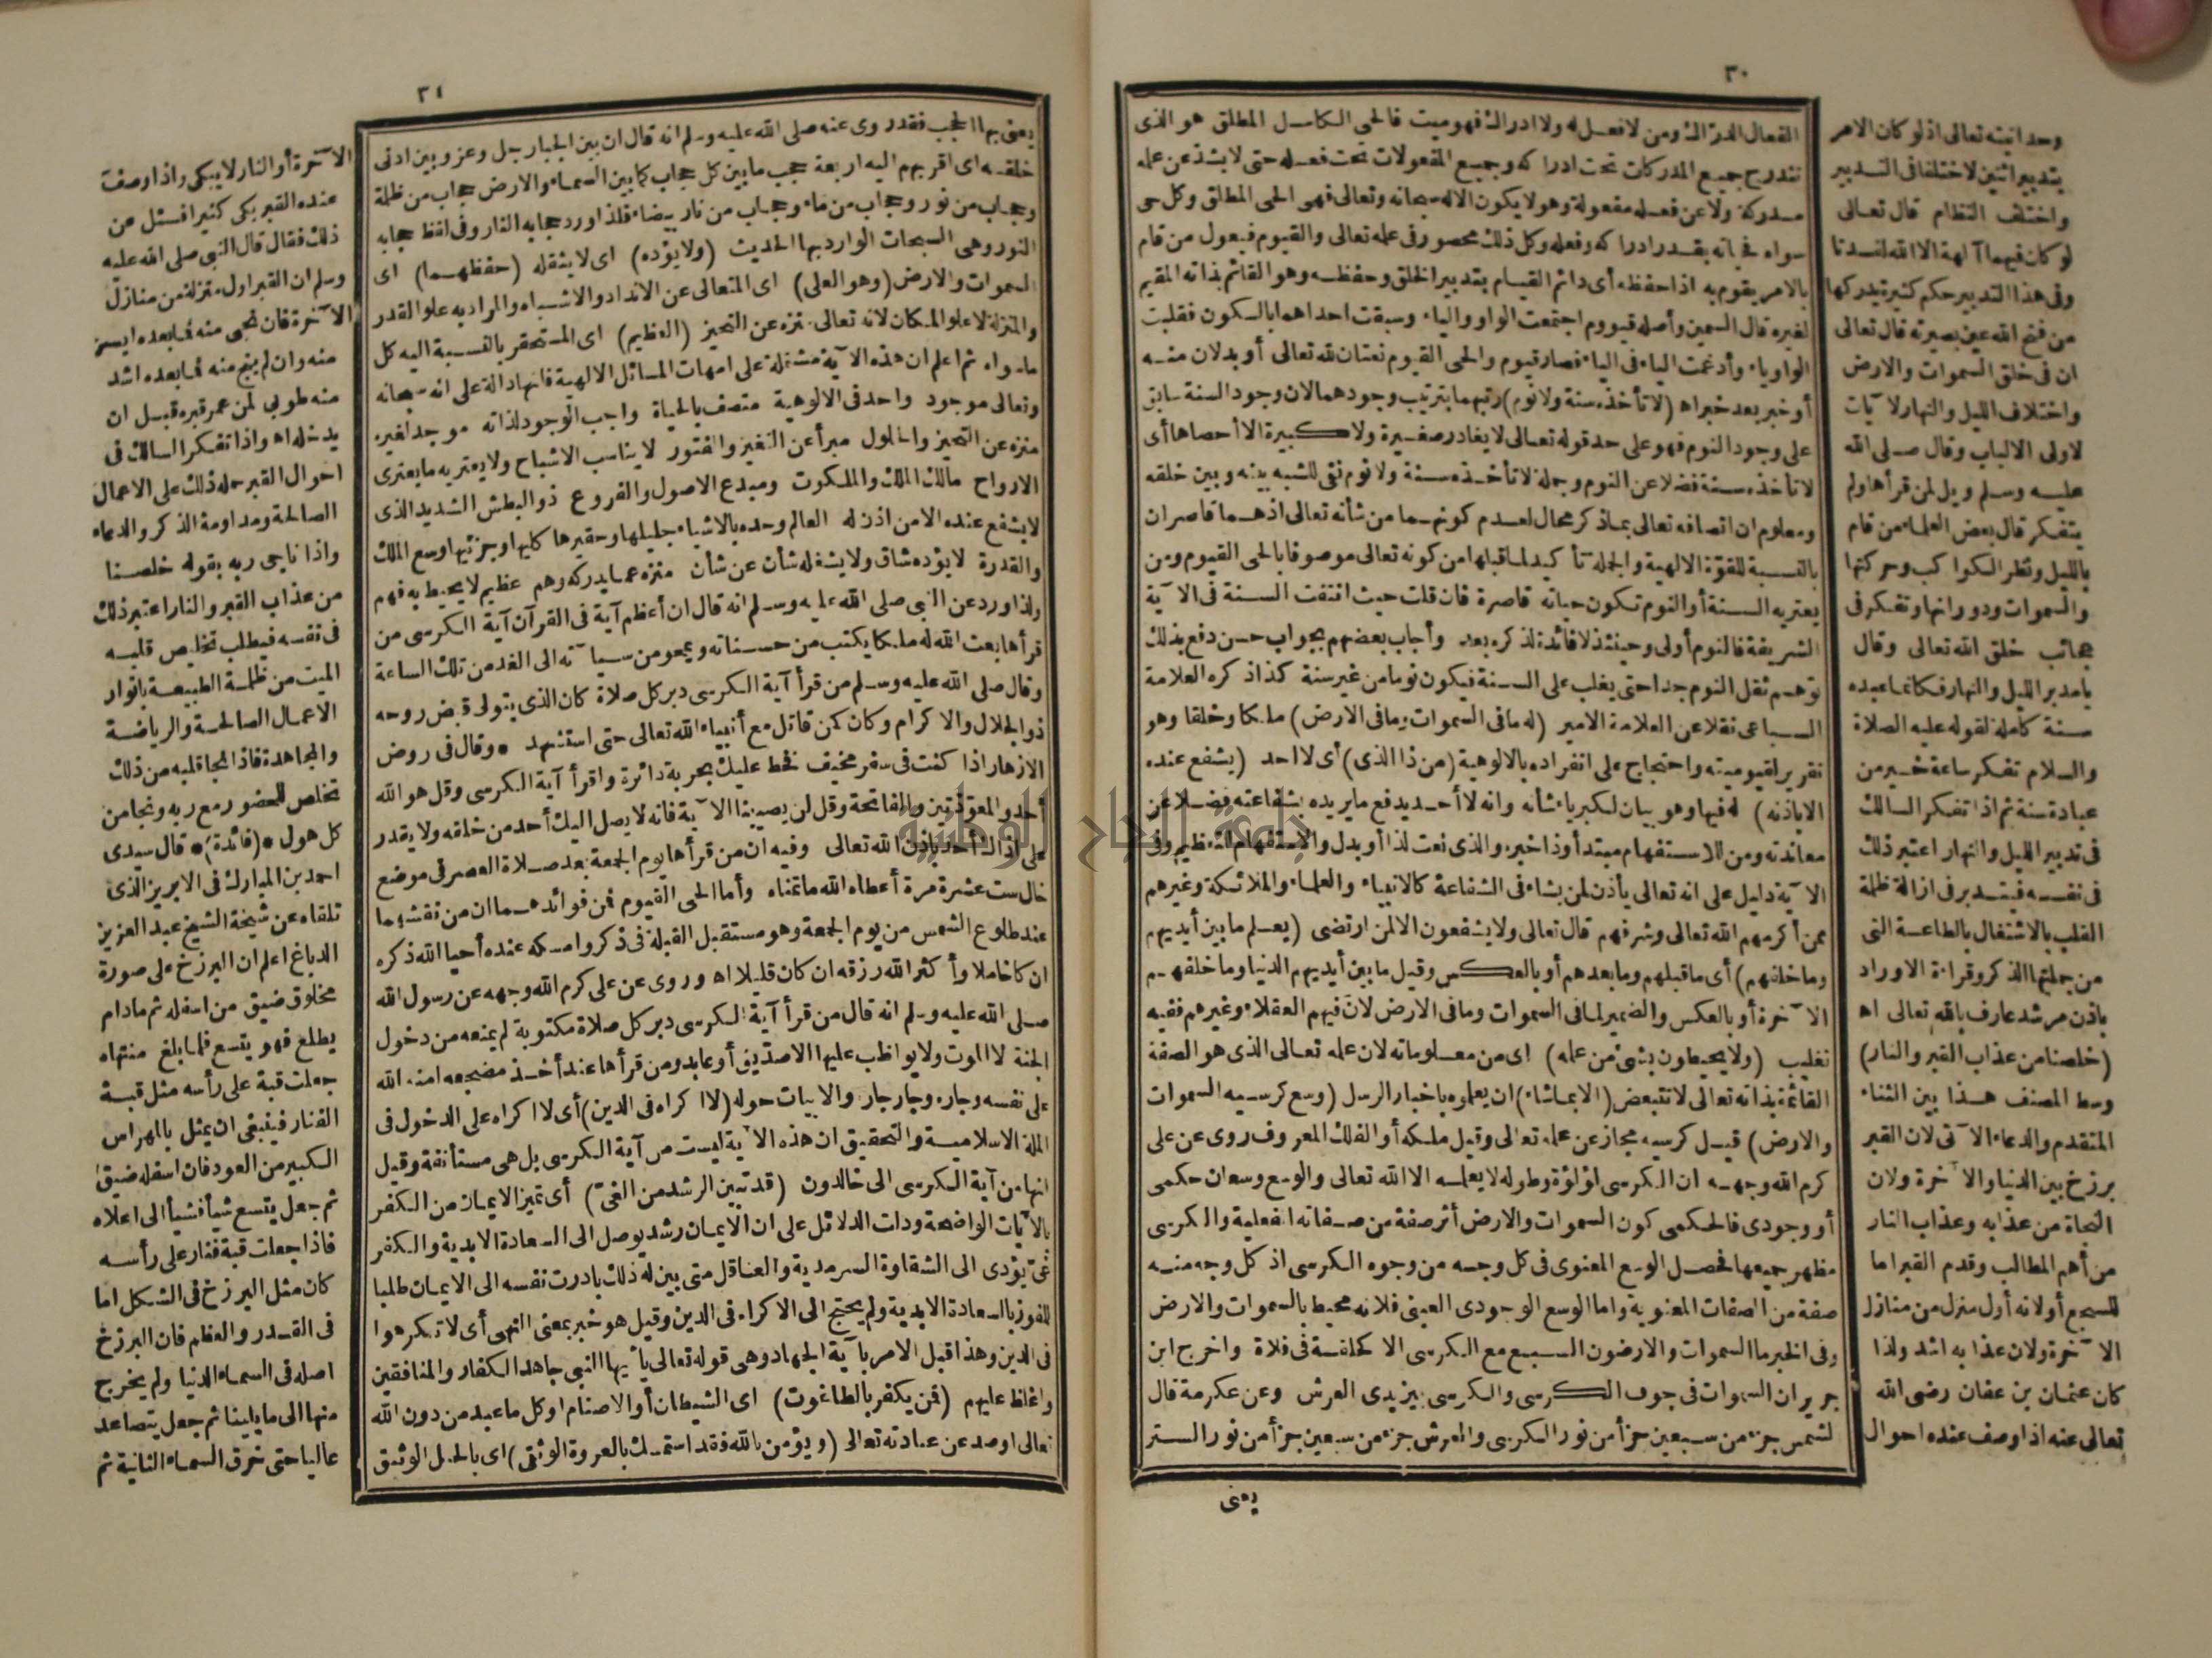 ٣٠
الفعال الدراك ومن لا فعل له ولا ادراك فهو ميت فالحى الكامل المطلق هو الذى
تندرج جميع المدركات تحت ادراكه وجميع المفعولات تحت فعله حتى لا يشذ عن علمه
مدركة ولا عن فعله مفعولة وهو لا يكون الا له سبحانه وتعالى فهو الحى المطلق وكل حى
سواه فحياته بقدر ادراكه وفعله وكل ذلك محصور فى علمه تعالى والقيوم فيعول من قام
بالامر يقوم به اذا حفظه أى دائم القيام بتدبير الخلق وحفظه وهو القائم بذاته المقيم
لغيره قال السمين وأصله قيووم اجتمعت الواو والياء وسبقت احداهما بالسكون فقلبت
الواو ياء وأدغمت الياء فى الياء فصار قيوم والحى القيوم نعتان لله تعالى أو بدلان منه
أو خبر بعد خبر اه (لا تأخذه سنة ولا نوم) رتبهما بترتيب وجودهما لان وجود السنة سابق
على وجود النوم فهو على حد قوله تعالى لا يغادر صغيرة ولا كبيرة الا أحصاها أى
لا تأخذه سنة فضلا عن النوم وجملة لا تأخذه سنة ولا نوم نفى للشبه بينه وبين خلقه
ومعلوم ان اتصافه تعالى بما ذكر محال لعدم كونهما من شأنه تعالى اذ هما قاصران
بالنسبة للقوة الالهية والجملة تأكيد لما قبلها من كونه تعالى موصوفا بالحى القيوم ومن
يعتريه السنة أو النوم تكون حياته قاصرة فان قلت حيث انتفت السنة فى الآية
الشريفة فالنوم أولى وحينئذ لا فائدة لذكره بعد وأجاب بعضهم بجواب حسن دفع بذلك
توهم ثقل النوم جدا حتى يغلب على السنة فيكون نوما من غير سنة كذا ذكره العلامة
السباعى نقلا عن العلامة الامير (له ما فى السموات وما فى الارض) ملكا وخلقا وهو
تقرير لقيوميته واحتجاج على انفراده بالالوهية (من ذا الذى) أى لا احد (يشفع عنده
الا باذنه) له فيها وهو بيان لكبرياء شأنه وانه لا أحد يدفع ما يريده بشفاعته فضلا عن
معاندته ومن للاستفهام مبتدأ وذا خبره والذى نعت لذا أو بدل والاستفهام للتعظيم وفى
الآية دليل على انه تعالى يأذن لمن يشاء فى الشفاعة كالانبياء والعلماء والملائكة وغيرهم
ممن أكرمهم الله تعالى وشرفهم قال تعالى ولا يشفعون الا لمن ارتضى (يعلم ما بين أيديهم
وما خلفهم) أى ما قبلهم وما بعدهم أو بالعكس وقيل ما بين أيديهم الدنيا وما خلفهم
الآخرة أو بالعكس والضمير لما فى السموات وما فى الارض لان فيهم العقلاء وغيرهم ففيه
تغليب (ولا يحيطون بشئ من علمه) اى من معلوماته لان علمه تعالى الذى هو الصفة
القائمة بذاته تعالى لا تتبعض (الا بما شاء) ان يعلموه باخبار الرسل (وسع كرسيه السموات
والارض) قيل كرسيه مجاز عن علمه تعالى وقيل ملكه أو الفلك المعروف روى عن على
كرم الله وجهه ان الكرسى لؤلؤة وطوله لا يعلمه الا الله تعالى والوسع وسعان حكمى
أو وجودى فالحكمى كون السموات والارض أثر صفة من صفاته الفعلية والكرسى
مظهر جميعها فحصل الوسع المعنوى فى كل وجه من وجوه الكرسى اذ كل وجه منه
صفة من الصفات المعنوية واما الوسع الوجودى العينى فلانه محيط بالسموات والارض
وفى الخبر ما السموات والارضون السبع مع الكرسى الا كحلقة فى فلاة واخرج ابن
جرير ان السموات فى جوف الكرسى والكرسى بين يدى العرش وعن عكرمة قال
الشمس جزء من سبعين جزأ من نور الكرسى والعرش جزء من سبعين جزأ من نور الستر
يعنى
وحدانيته تعالى اذ لو كان الامر
بتدبير اثنين لاختلفا فى التدبير
واختلف النظام قال تعالى
لو كان فيهما آلهة الا الله لفسدتا
وفى هذا التدبير حكم كثيرة يدركها
من فتح الله عين بصيرته قال تعالى
ان فى خلق السموات والارض
واختلاف الليل والنهار لآيات
لاولى الالباب وقال صلى الله
عليه وسلم ويل لمن قرأها ولم
يتفكر قال بعض العلماء من قام
بالليل ونظر الكواكب وحركتها
والسموات ودورانها وتفكر فى
عجائب خلق الله تعالى وقال
يا مدبر الليل والنهار فكأنما عبده
سنة كاملة لقوله عليه الصلاة
والسلام تفكر ساعة خير من
عبادة سنة ثم اذا تفكر السالك
فى تدبير الليل والنهار اعتبر ذلك
فى نفسه فيتدبر فى ازالة ظلمة
القلب بالاشتغال بالطاعة التى
من جملتها الذكر وقراءة الاوراد
باذن مرشد عارف بالله تعالى اه
(خلصنا من عذاب القبر والنار)
وسط المصنف هذا بين الثناء
المتقدم والدعاء الآتى لان القبر
برزخ بين الدنيا والآخرة ولان
النجاة من عذابه وعذاب النار
من أهم المطالب وقدم القبر اما
للسجع أو لانه أول منزل من منازل
الآخرة ولان عذابه اشد ولذا
كان عثمان بن عفان رضى الله
تعالى عنه اذا وصف عنده احوال
٣١
يعنى بها الحجب فقد روى عنه صلى الله عليه وسلم انه قال ان بين الجبار جل وعز وبين ادنى
خلقه اى اقربهم اليه اربعة حجب ما بين كل حجاب كما بين السماء والارض حجاب من ظلمة
وحجاب من نور وحجاب من ماء وحجاب من نار بيضاء فلذا ورد حجابه النار وفى لفظ حجابه
النور وهى السبحات الوارد بها الحديث (ولا يؤده) اى لا يثقله (حفظهما) اى
السموات والارض (وهو العلى) اى المتعالى عن الانداد والاشباه والمراد به علو القدر
والمنزلة لا علو المكان لانه تعالى منزه عن التحيز (العظيم) اى المستحقر بالنسبة اليه كل
ما سواه ثم اعلم ان هذه الآية مشتملة على امهات المسائل الالهية فانها دالة على انه سبحانه
وتعالى موجود واحد فى الالوهية متصف بالحياة واجب الوجود لذاته موجد لغيره
منزه عن التحيز والحلول مبرأ عن التغير والفتور لا يناسب الاشباح ولا يعتريه ما يعترى
الارواح مالك الملك والملكوت ومبدع الاصول والفروع ذو البطش الشديد الذى
لا يشفع عنده الا من اذن له العالم وحده بالاشياء جليلها وحقيرها كليها وجزئيها وسع الملك
والقدرة لا يؤده شاق ولا يشغله شأن عن شأن منزه عما يدركه وهم عظيم لا يحيط به فهم
ولذا ورد عن النبى صلى الله عليه وسلم انه قال ان أعظم آية فى القرآن آية الكرسى من
قرأها بعث الله له ملكا يكتب من حسناته ويمحو من سيآته الى الغد من تلك الساعة
وقال صلى الله عليه وسلم من قرأ آية الكرسى دبر كل صلاة كان الذى يتولى قبض روحه
ذو الجلال والاكرام وكان كمن قاتل مع أنبياء الله تعالى حتى استشهد * وقال فى روض
الازهار اذا كنت فى سفر مخيف فخط عليك بحربة دائرة واقرأ آية الكرسى وقل هو الله
أحد والمعوذتين والفاتحة وقل لن يصيبنا الآية فانه لا يصل اليك أحد من خلقه ولا يقدر
على اذاك أحد باذن الله تعالى وفيه ان من قرأها يوم الجمعة بعد صلاة العصر فى موضع
خال ست عشرة مرة أعطاه الله ما تمناه وأما الحى القيوم فمن فوائدهما ان من نقشهما
عند طلوع الشمس من يوم الجمعة وهو مستقبل القبلة فى ذكر وامسكه عنده أحيا الله ذكره
ان كان خاملا وأكثر الله رزقه ان كان قليلا اه وروى عن على كرم الله وجهه عن رسول الله
صلى الله عليه وسلم انه قال من قرأ آية الكرسى دبر كل صلاة مكتوبة لم يمنعه من دخول
الجنة الا الموت ولا يواظب عليها الا صديق أو عابد ومن قرأها عند أخذ مضجعه امنه الله
على نفسه وجاره وجار جاره والابيات حوله (لا اكراه فى الدين) أى لا اكراه على الدخول فى
الملة الاسلامية والتحقيق ان هذه الآية ليست من آية الكرسى بل هى مستأنفة وقيل
انها من آية الكرسى الى خالدون (قد تبين الرشد من الغى) أى تميز الايمان من الكفر
بالآيات الواضحة ودلت الدلائل على ان الايمان رشد يوصل الى السعادة الابدية والكفر
غى يؤدى الى الشقاوة السرمدية والعاقل متى بين له ذلك بادرت نفسه الى الايمان طلبا
للفوز بالسعادة الابدية ولم يحتج الى الاكراه فى الدين وقيل هو خبر بمعنى النهى أى لا تكرهوا
فى الدين وهذا قبل الامر بآية الجهاد وهى قوله تعالى يا أيها النبى جاهد الكفار والمنافقين
واغلظ عليهم (فمن يكفر بالطاغوت) اى الشيطان أو الاصنام او كل ما عبد من دون الله
تعالى او صد عن عبادته تعالى (ويؤمن بالله فقد استمسك بالعروة الوثقى) اى بالحبل الوثيق
الآخرة أو النار لا يبكى واذا وصف
عنده القبر بكى كثيرا فسئل عن
ذلك فقال قال النبى صلى الله عليه
وسلم ان القبر اول منزلة من منازل
الآخرة فان نجى منه فما بعده ايسر
منه وان لم ينج منه فما بعده اشد
منه طوبى لمن عمر قبره قبل ان
يدخله اه واذا تفكر السالك فى
احوال القبر حمله ذلك على الاعمال
الصالحة ومداومة الذكر والدعاء
واذا ناجى ربه بقوله خلصنا
من عذاب القبر والنار اعتبر ذلك
فى نفسه فيطلب تخليص قلبه
الميت من ظلمة الطبيعة بانوار
الاعمال الصالحة والرياضة
والمجاهدة فاذا نجا قلبه من ذلك
تخلص للحضور مع ربه ونجا من
كل هول *(فائدة)* قال سيدى
احمد بن المبارك فى الابريز الذى
تلقاه عن شيخه الشيخ عبد العزيز
الدباغ اعلم ان البرزخ على صورة
مخلوق ضيق من اسفله ثم مادام
يطلع فهو يتسع فلما بلغ منتهاه
جعلت قبة على رأسه مثل قبة
الفنار فينبغى ان يمثل بالمهراس
الكبير من العود فان اسفله ضيق
ثم جعل يتسع شيأ فشيأ الى اعلاه
فاذا جعلت قبة فنار على رأسه
كان مثل البرزخ فى الشكل اما
فى القدر والعظم فان البرزخ
اصله فى السماء الدنيا ولم يخرج
منها الى ما يلينا ثم جعل يتصاعد
عاليا حتى خرق السماء الثانية ثم
جامعة النجاح الوطنية